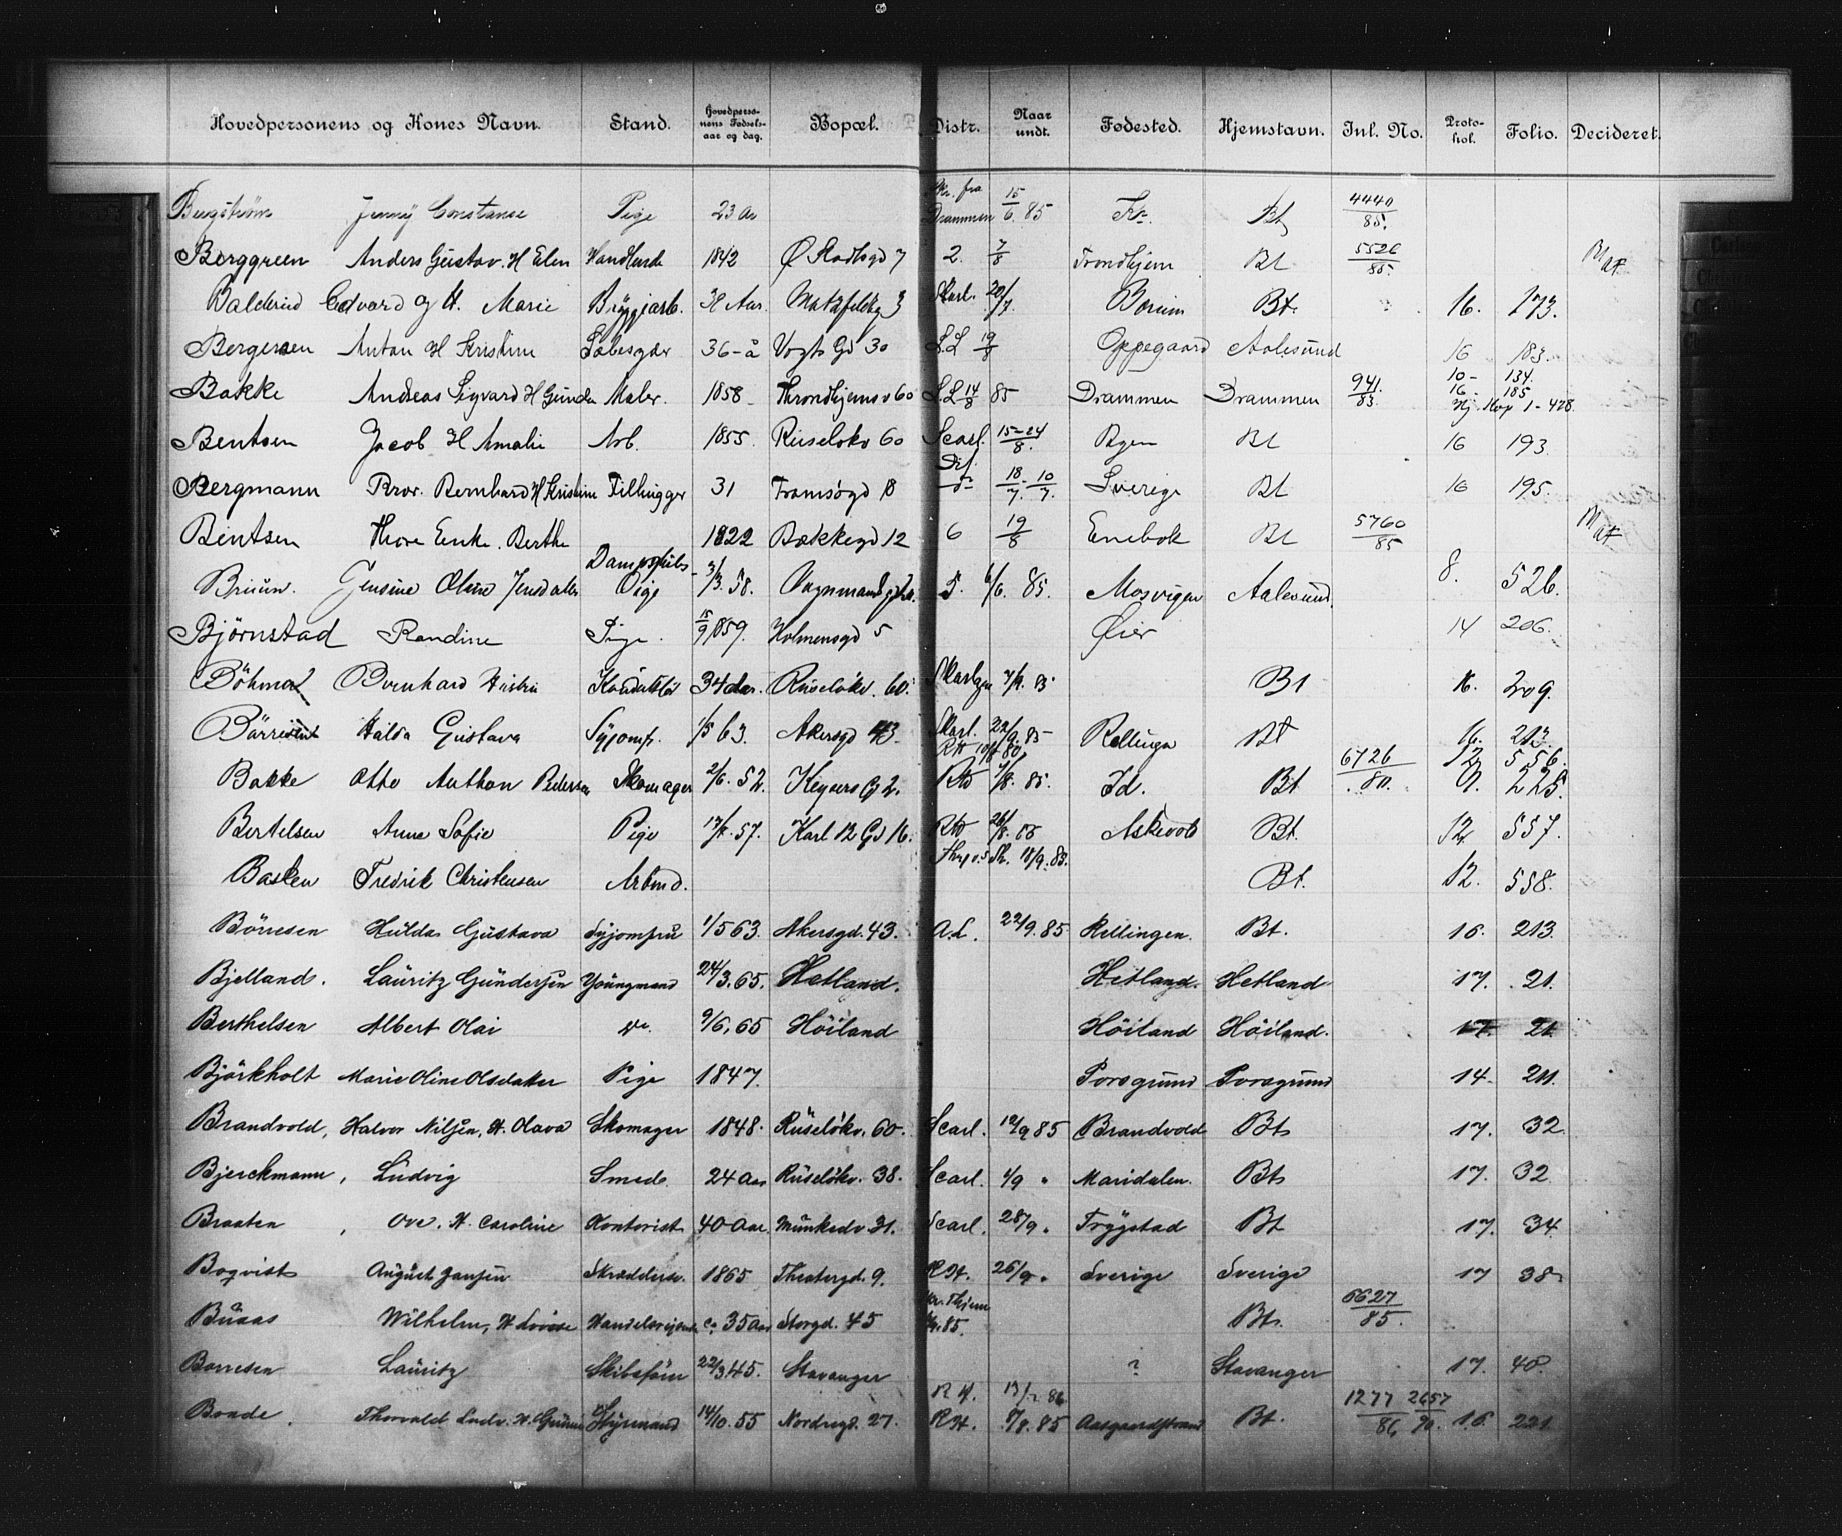 Hovedpersonens og Kones Navn. Stand. Hovedpersonens Fødselsaar og dag. Bopæl. Distr. Naar undt. Fødested. Hjemstavn. Inl. No. Protokol. Folio. Decideret.
Bergstrøm Jenny Constanse Pige 23 Aar fra Drammen 15/6 85 Bt 4440/85.
Berggreen Anders Gustav. H Elen Handlende 1842 Ø Slodsgd 7 2. 7/8 Trondhjem Bt 5526/85
Balderud Edvard og H. Marie Bryggearb. 31 Aar. 3 Skarl. 20/7 Bærum Bt. 16. 173.
Bergersen Anton H Kristine 36-å Vogts Gd 30 S.L 19/8 Oppegaard Aalesund 16 183.
Bakke Andreas Sigvard H Gunda Maler. 1858 Throndhjemsv 60 S.L 14/8 85 Drammen Drammen 941./83. 10- 134. 16- 185 1-428
Bentsen Jacob H Amalie Arb. 1855. Ruseløkv 60 Scarl. 15-24/8. Bt 16 193.
Bergmann Bror. Bernhard H Kristine 31 Tromsøgd 18 18/7. 10/7. Sverige Bt 16 195.
Bentsen Thore Enke. Berthe 1822 Bækkegd 12 6 19/8 Enebak Bt 5760/85
Bruun. Gensine Oline Jensdatter Dampskibs- Pige 3/3. 58. 5. 6/6. 85. Mosvigen Aalesund. 8. 526.
Bjørnstad Randine Pige. 15/9 859. Holmensgd 5 Øier 14 206.
Böhmer Bernhard Hustru 34 Aar. Ruseløkv. 60. 7/9. 85 Bt 16. 209.
Börresen Hulda Gustava Syjomfr. 1/5 63. Akersgd 43. Skarl. 22/9. 85 Rellingen Bt 16. 213.
Bakke Otto Anthon Pedersen Skomager 2/6. 52. Keysers G 2. Rtt 85. Id. Bt 6726/80. 12. 556. 9. 225.
Bertelsen Anne Sofie Pige 57. Karl 12 Gd 16. Bt. 12. 557.
Basken Fredrik Christensen Arbmd. 18/9. 85. Bt. 12. 558.
Börresen Hulda Gustava Syjomfru 1/5 63. Akersgd. 43. A.L. 22/9. 85 Rellingen. Bt. 16. 213.
Bjelland. Lauritz Gundersen Youngmand 24/3. 65. Hetland. Hetland. Hetland 17. 21.
Berthelsen Albert Olai do. 9/6, 65 Höiland Höiland Höiland. 17. 21.
Björkholt Marie Oline Olsdatter Pige 1847. Porsgrund Porsgrund 14. 211.
Brandvold, Halvor Nilsen, H. Olava Skomager 1848. Ruseløkv. 60. Scarl. 19/9 85 Brandvold Bt 17. 32.
Bjerckmann, Ludvig Smed. 24 Aar Ruseløkv. 38. Scarl. 4/9 " Maridalen. Bt 17. 32.
Braaten, Ove. H. Caroline Kontorist 40 Aar. Munkedv. 31. Scarl. 28/9. Trygstad Bt 17. 34.
Boqvist August Jansen Skrædersv. 1865 Theatergd. 9. R.H. 26/9. Sverige Sverige 17 38
Buaas Wilhelm, H Lovise Handelsreisende ca. 35 Aar Storgd. 45 Bt. 6627/85.
Borresen Lauritz Skibsfører 22/3 45. Stavanger ? Stavanger 17. 40
R H.
Bonde. Thorvald Ludv. H. Styrmand 14/10. 55 Nordregd. 27. R.H. 85 Aasgaardstrand Bt. 1277/86 2657/90. 16. 221